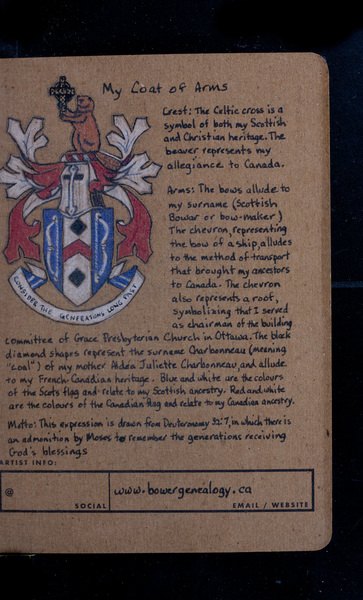 My Coat of Arms
Crest: The Celtic cross is a
symbol of both my Scottish
and Christian heritage. The
beaver represents my
allegiance to Canada.
Arms: The bows allude to
my surname (Scottish
Bowar or bow-maker)
The chevron, representing
the bow of a ship, alludes
to the method of transport
that brought my ancestors
to Canada. The chevron
also represents a roof,
symbolizing that I served
as chairman of the building
committee of Grace Presbyterian Church in Ottawa. The black
diamond shapes represent the surname Charbonneau (meening
"coal") of my mother Aldéa Juliette Charbonneau, and allude
to my French-Canadian heritage. Blue and white are the colours
of the Scots flag and relate to my Scottish ancestry. Red and white
are the colours of the Canadian flag and relate to my Canadian ancestry.
Motto: This expression is drawn from Deuteronomy 32:7, in which there is
an admonition by Moses to remember the generations receiving
God's blessings
CONSIDER THE GENERATIONS LONG PAST
ARTIST INFO:
@
SOCIAL
www.bowergenealogy.ca
EMAIL / WEBSITE